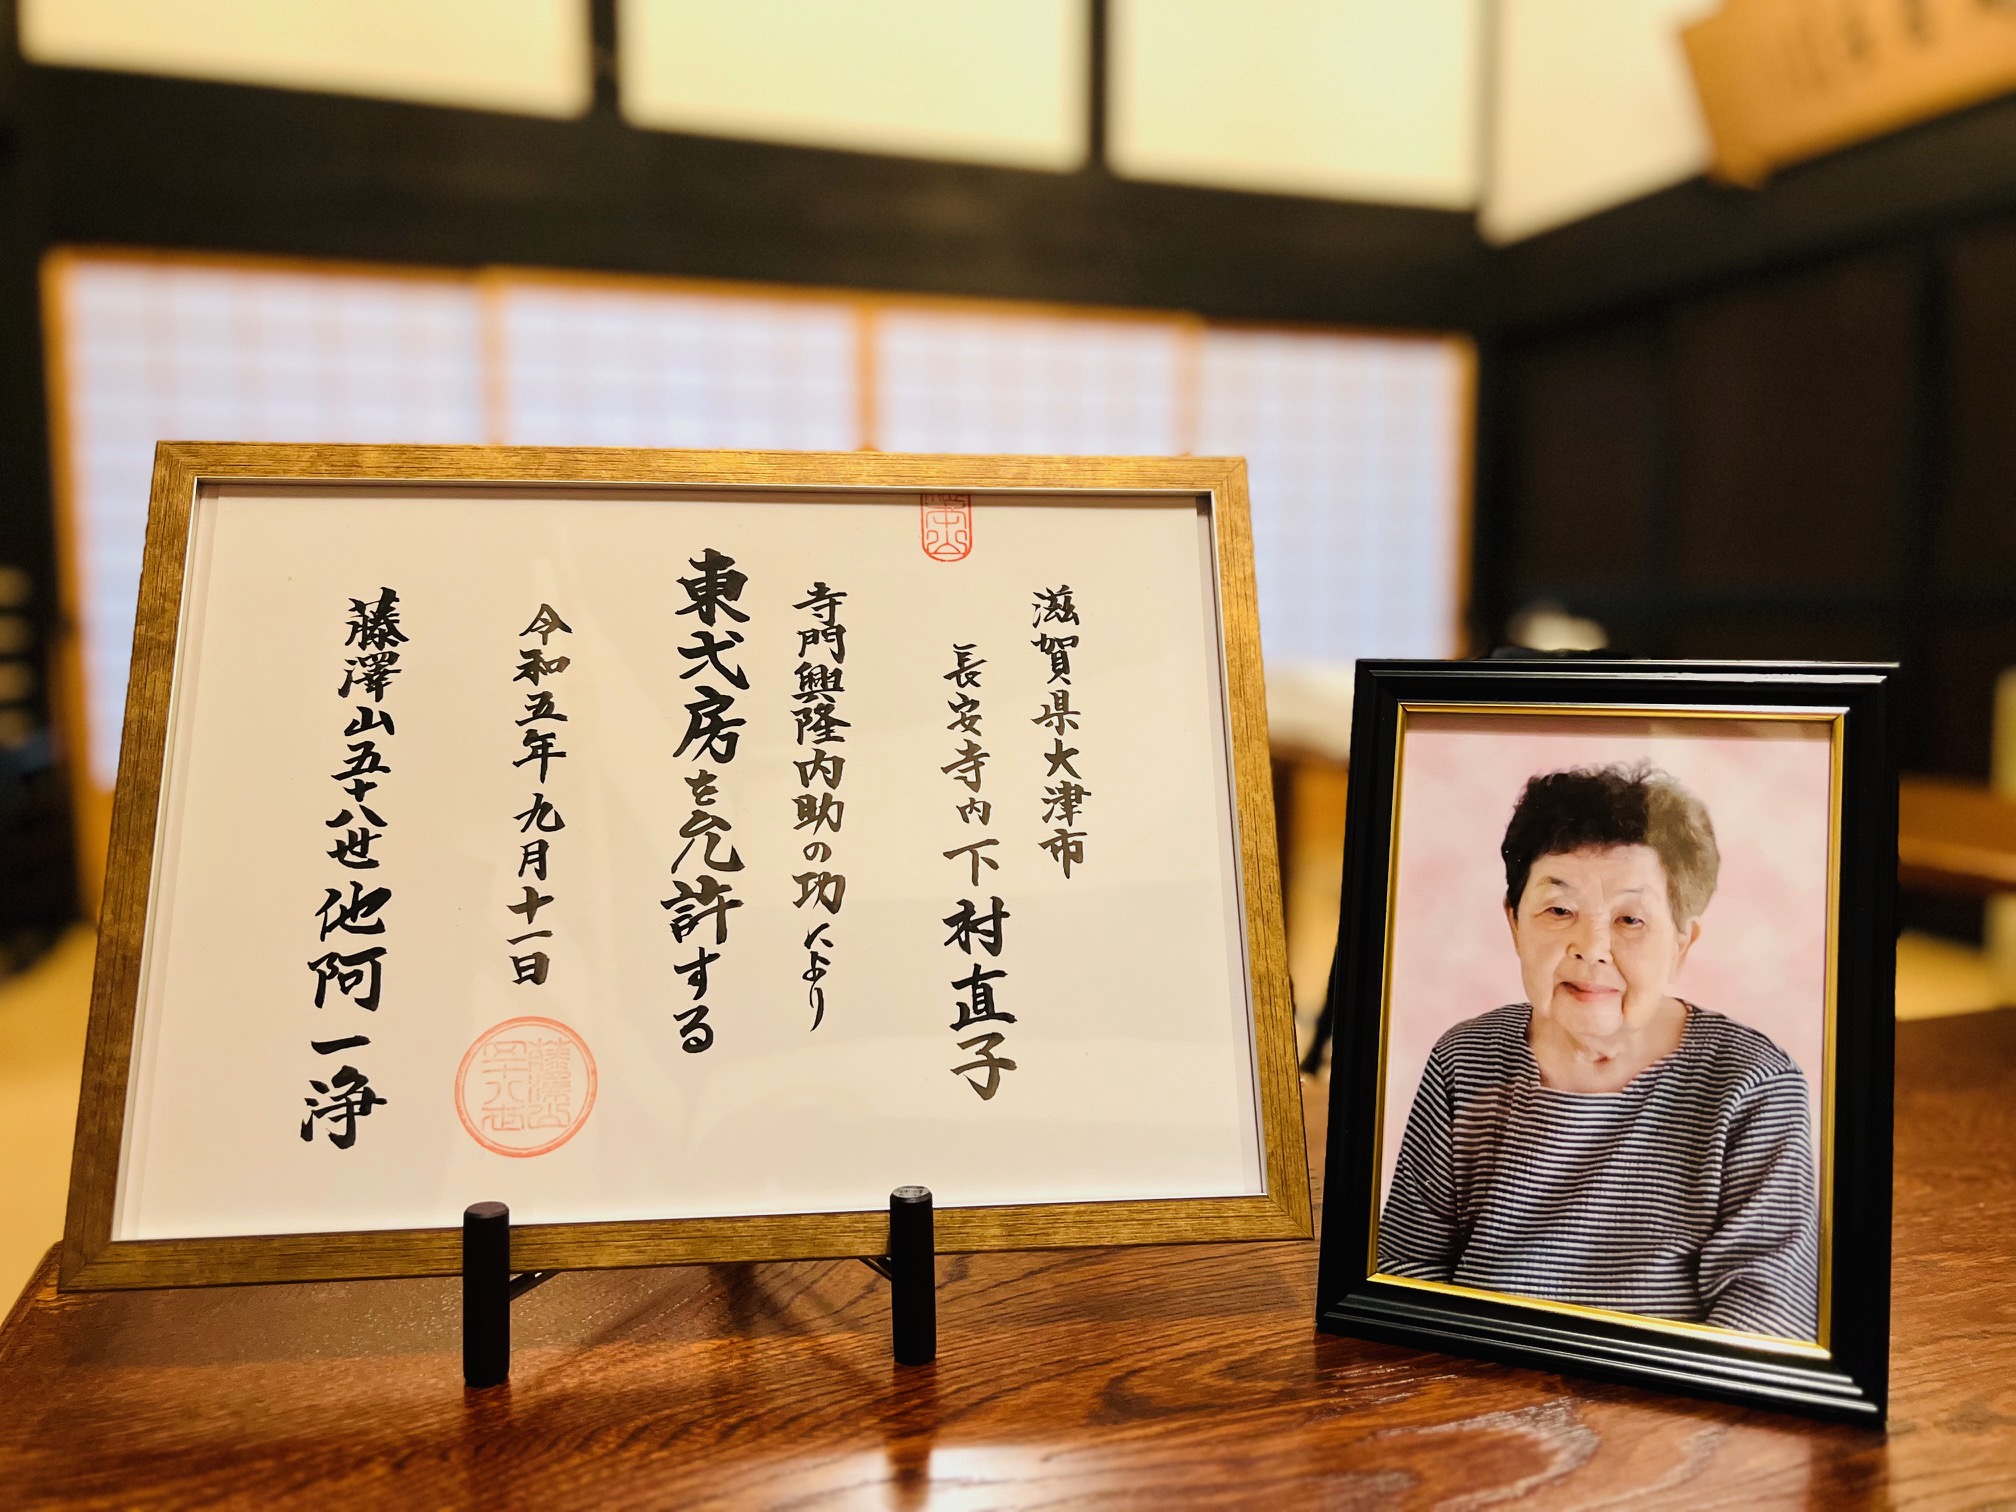 滋賀県大津市
長安寺内 下村直子
寺門興隆内助の功により
東弌房を允許する
令和五年九月十一日
藤澤山五十八世 他阿一浄
藤澤山
五十八世